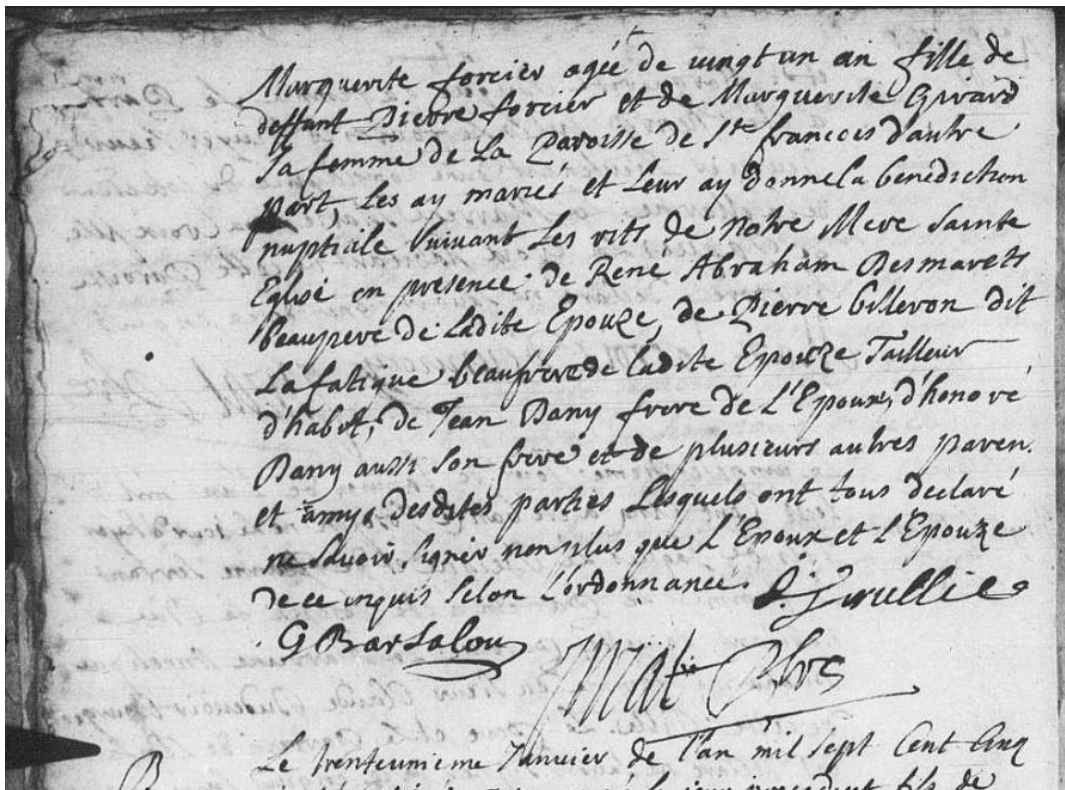 Marguerite forcier agée de vingt un an fille de
deffunt Pierre forcier et de Marguerite Girard
sa femme de La Paroisse de St francois d'autre
part, Les ay mariés et Leur ay donné la benediction
nuptiale suivant Les rits de Notre Mere Sainte
Eglise en presence de René Abraham Desmarets
beaupere de Ladite Epouze, de Pierre billeron dit
Lafatigue beaufrere de ladite Epouze Tailleur
d'habit, de Jean Dany frere de L'Epoux, d'honoré
Dany aussi son frere et de plusieurs autres paren.
et amys desdites parties Lesquels ont tous declaré
ne savoir signer non plus que L'Epoux et L'Epouze
de ce enquis selon L'ordonnance.
G Barsalou
Ptre
Le trenteunieme Janvier de l'an mil sept Cent Cinq
precedent fils de